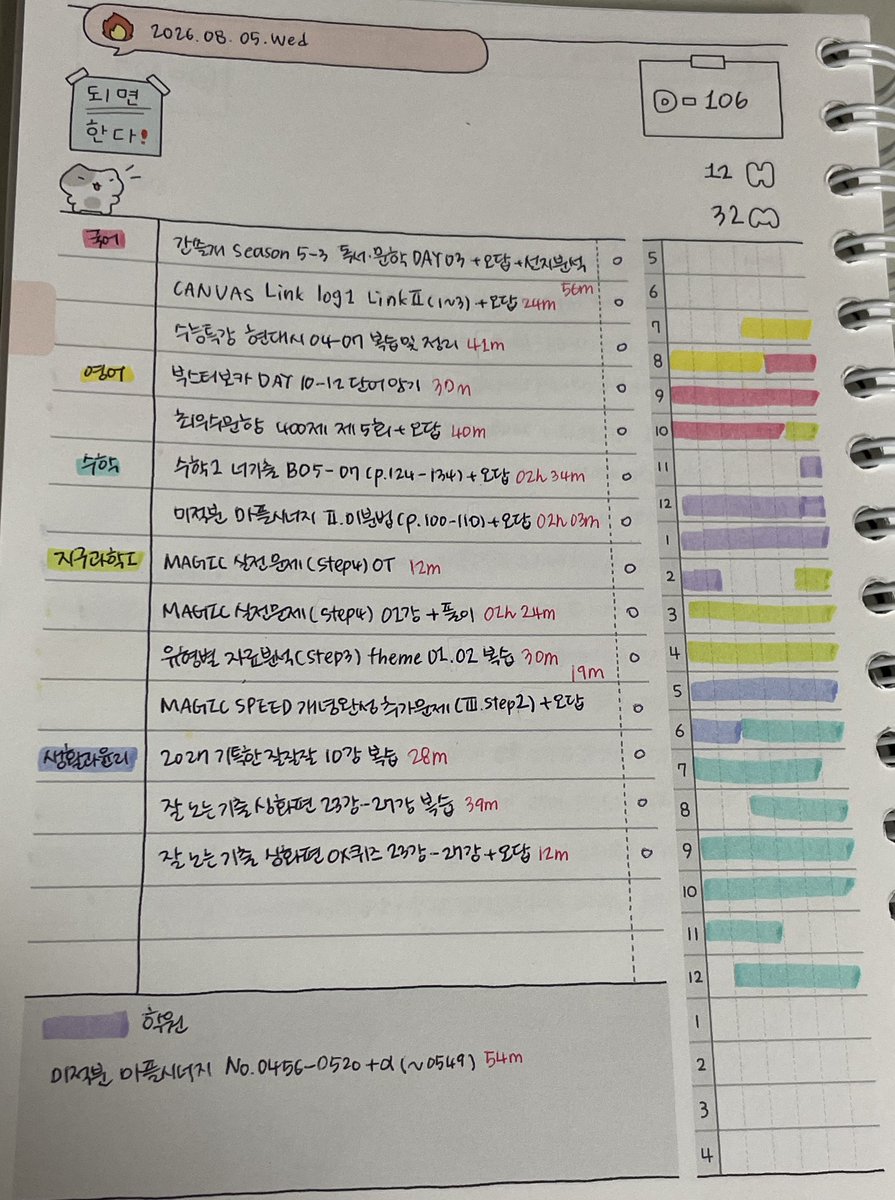 2026.08.05.Wed
되면
한다!
D-106
12H
32M
국어
간쓸개 Season 5-3 독서·문학 DAY03 + 오답 + 선지분석 56m
CANVAS Link log1 Link Ⅱ (1~3) + 오답 24m
수능특강 현대시 04-07 복습 및 정리 41m
영어
북스터보카 DAY 10-12 단어암기 30m
최우수문항 400제 제5회 + 오답 40m
수학
수학2 너기출 B05-07 (p.124-134) + 오답 02h 34m
미적분 마플시너지 Ⅱ.미분법 (p.100-110) + 오답 02h 03m
지구과학Ⅰ
MAGIC 실전문제(Step4) OT 12m
MAGIC 실전문제(Step4) 01강 + 풀이 02h 24m
유형별 자료분석(Step3) theme 01.02 복습 30m
MAGIC SPEED 개념완성 추가문제 (Ⅲ.step2) + 오답 19m
생활과윤리
2027 기특한 잘잘잘 10강 복습 28m
잘 노는 기술 심화편 23강-27강 복습 39m
잘 노는 기술 심화편 OX퀴즈 23강-27강 + 오답 12m
5
6
7
8
9
10
11
12
1
2
3
4
5
6
7
8
9
10
11
12
1
2
3
4
학원
미적분 마플시너지 No.0456-0520 + α (~0549) 54m